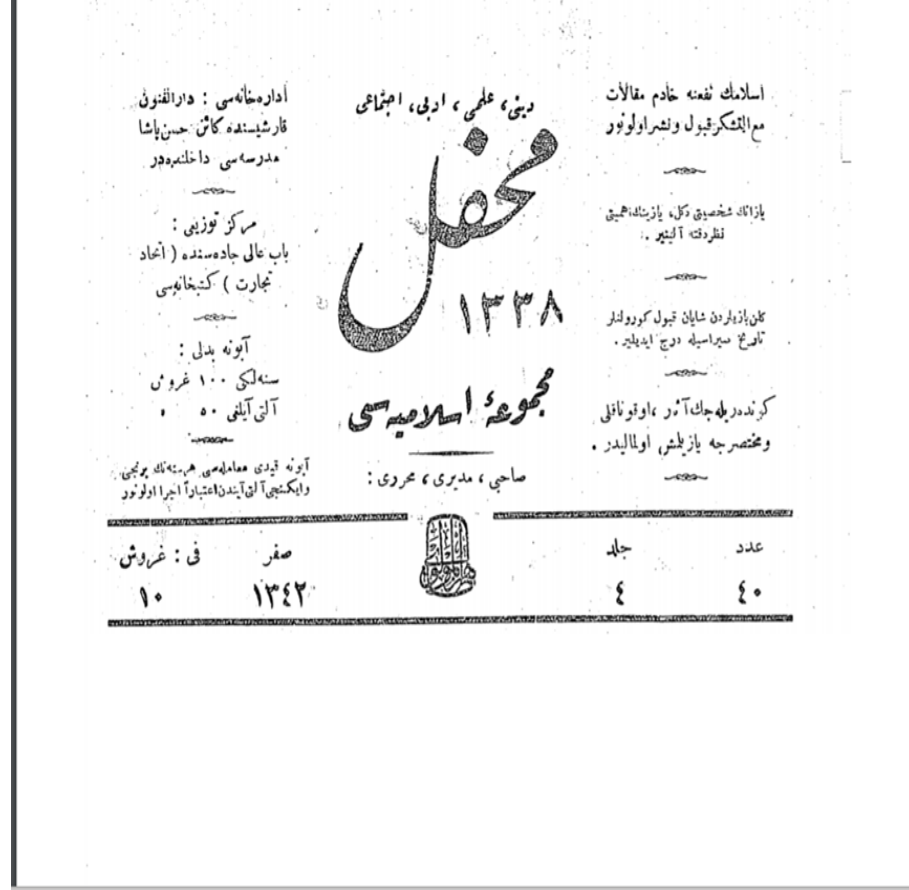 اسلامك نفعنه خادم مقالات
مع التشكر قبول ونشر اولونور
يازانك شخصيتى دكل، يازينك اهميتى
نظر دقته آلينير .
كلن يازيلردن شايان قبول كورولنلر
تاريخ صيراسيله درج ايديلير .
كوندريله جك آثار ، اوقوناقلى
ومختصرجه يازيلمش اولماليدر .
دينى ، علمى ، ادبى ، اجتماعى
محفل
١٣٣٨
مجموعۀ اسلاميه سى
صاحبى ، مديرى ، محررى :
اداره خانه سى : دارالفنون
قارشيسنده كائن حسن پاشا
مدرسه سى داخلنده در
مركز توزيعى :
باب عالى جاده سنده ( اتحاد
تجارت ) كتبخانه سى
آبونه بدلى :
سنه لكى ١٠٠ غروش
آلتى آيلغى ٥٠ »
آبونه قيدى معامله سى هر سنه نك برنجى
وايكنجى آلتى آيندن اعتباراً اجرا اولونور
عدد
٤٠
جلد
٤
صفر
١٣٤٢
فى : غروش
١٠